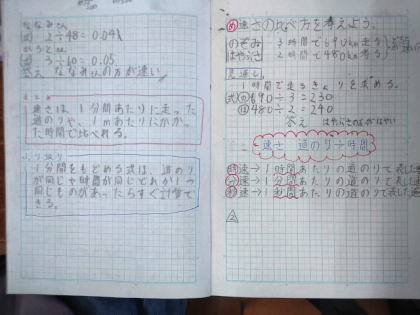 ななみさん
式 2÷48=0.04
式 3÷60=0.05
答え ななみさんの方が速い
まとめ
速さは、1分間あたりに走った
道のりや、1mあたりにかかっ
た時間で比べれる。
ふり返り
1分間をもとめる式は、道のり
が同じや時間が同じでどれか1つ
同じものがあったらすぐ計算で
きる。
め 速さの比べ方を考えよう。
のぞみ 3時間で690km走る
はやぶさ 2時間で480km走る
見通し
1時間で走るきょりを求める。
式 の 690÷3=230
は 480÷2=240
答え はやぶさの方がはやい
速さ=道のり÷時間
時速→1時間あたりの道のりで表した速
分速→1分間あたりの道のりで表した速
秒速→1秒間あたりの道のりで表した速